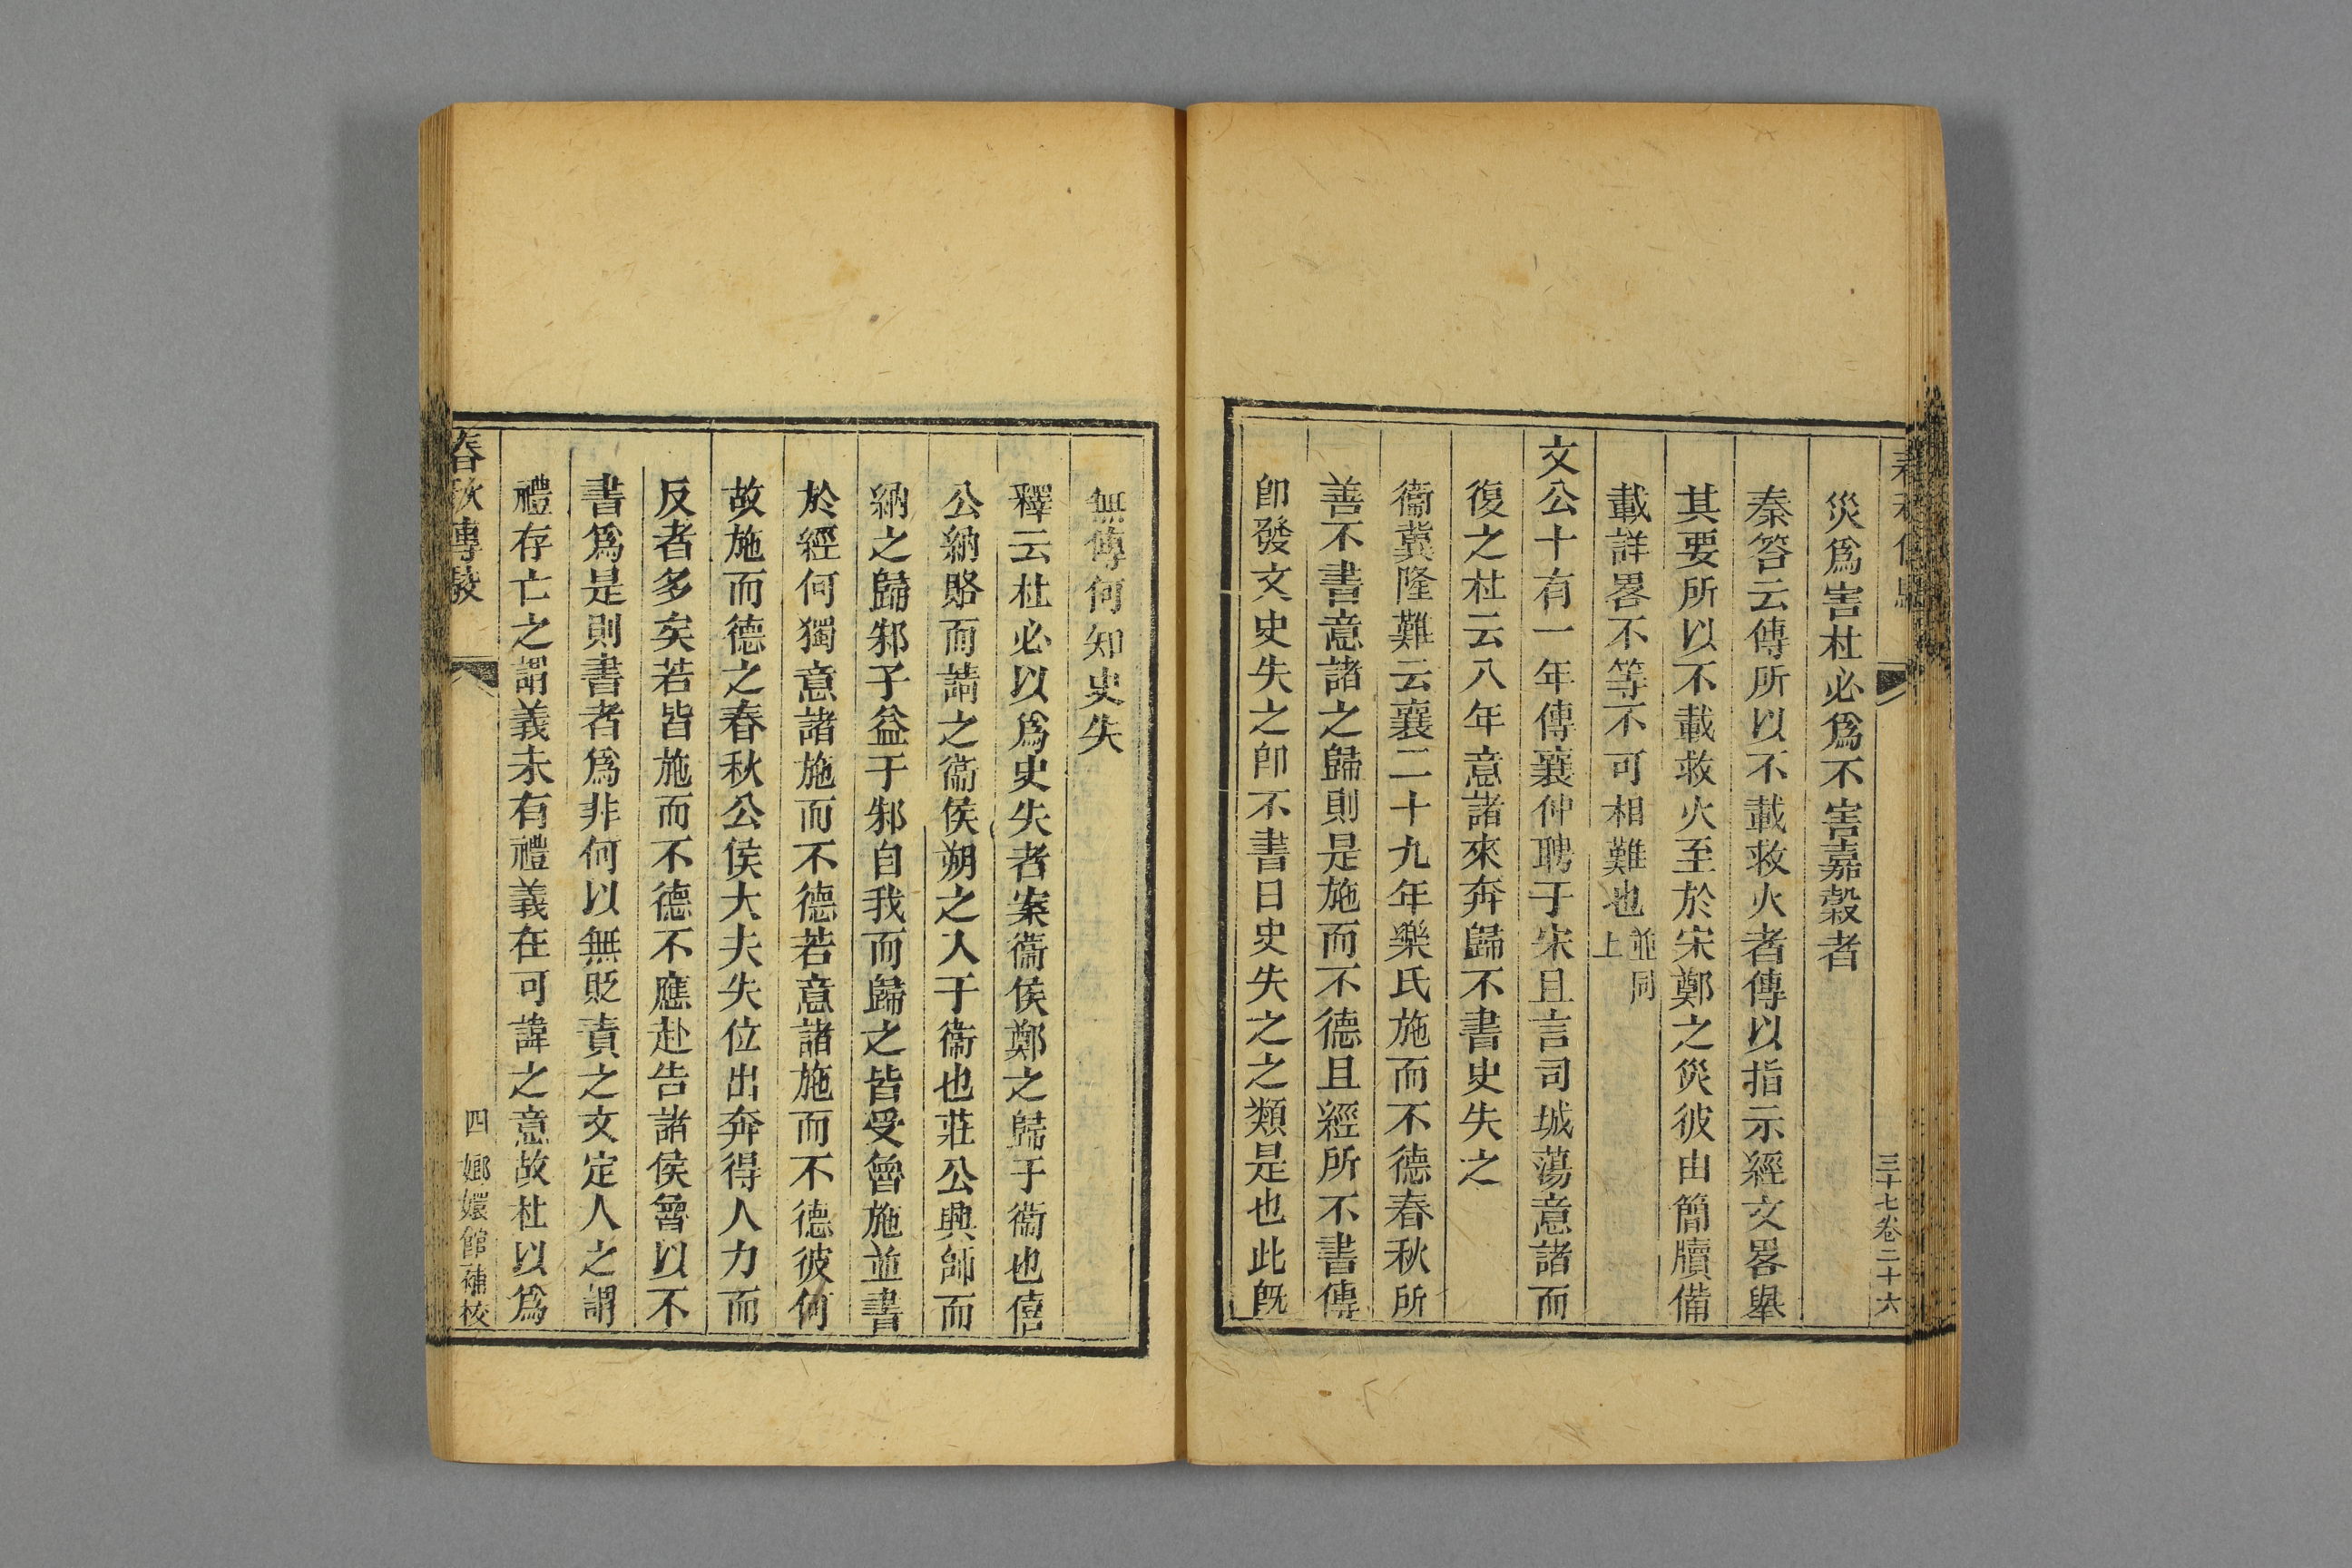 三十七卷二十六
災爲害杜必爲不害嘉穀者
秦答云傳所以不載救火者傳以指示經文畧舉
其要所以不載救火至於宋鄭之災彼由簡牘備
載詳畧不等不可相難也並同上
文公十有一年傳襄仲聘于宋且言司城蕩意諸而
復之杜云八年意諸來奔歸不書史失之
衞冀隆難云襄二十九年樂氏施而不德春秋所
善不書意諸之歸則是施而不德且經所不書傳
卽發文史失之卽不書日史失之之類是也此旣
無傳何知史失
釋云杜必以爲史失者案衞侯鄭之歸于衞也僖
公納賂而請之衞侯朔之入于衞也莊公興師而
納之歸邾子益于邾自我而歸之皆受魯施並書
於經何獨意諸施而不德若意諸施而不德彼何
故施而德之春秋公侯大夫失位出奔得人力而
反者多矣若皆施而不德不應赴告諸侯魯以不
書爲是則書者爲非何以無貶責之文定人之謂
禮存亡之謂義未有禮義在可諱之意故杜以爲
春秋傳駮 四 嫏嬛館補校